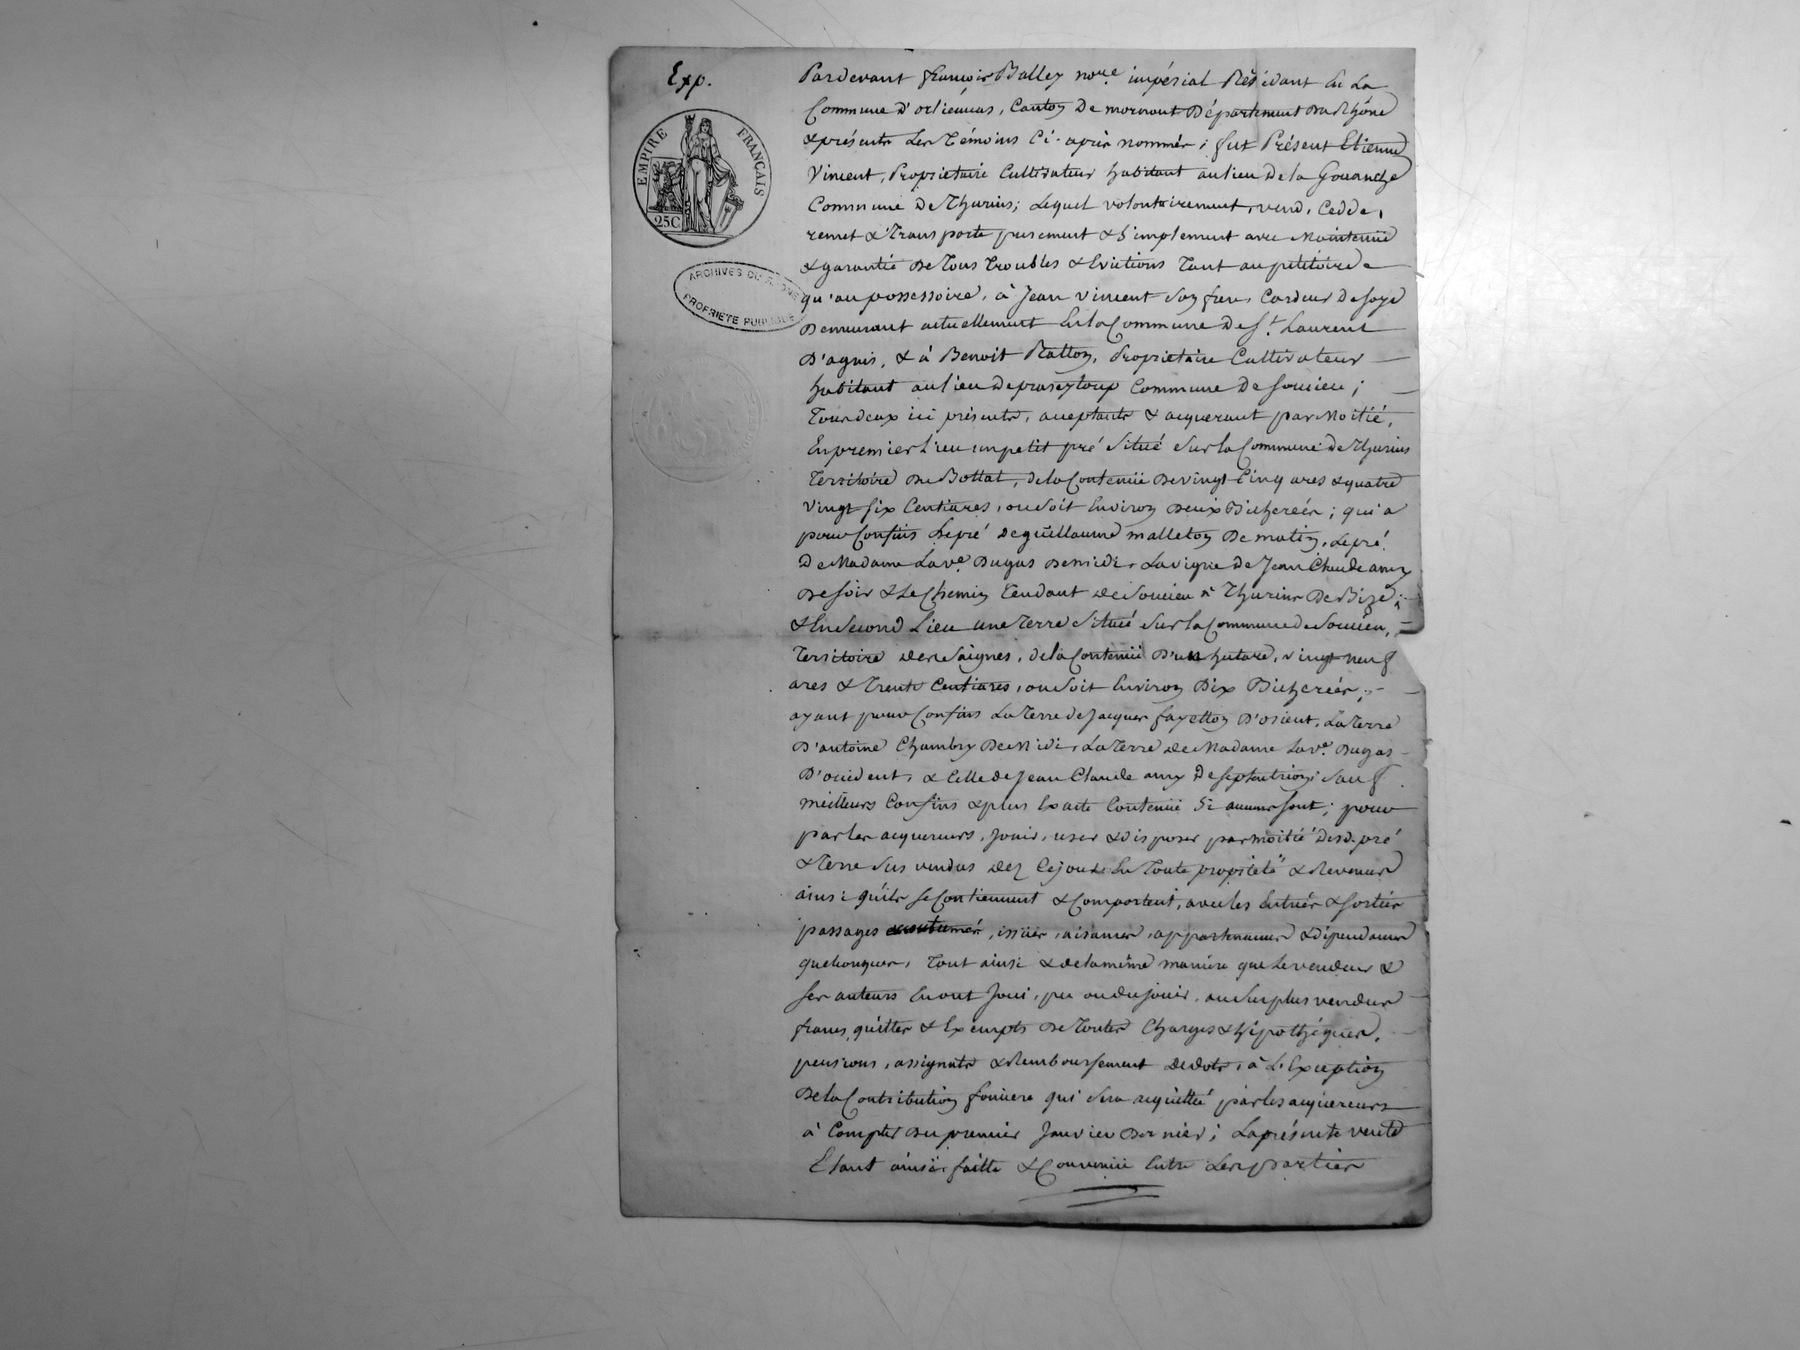 Exp.
EMPIRE FRANÇAIS
25C
ARCHIVES DU RHÔNE
PROPRIÉTÉ PUBLIQUE
Pardevant françois Balley no.re impérial Résidant En La
Commune d'orliennas, Canton De mornant Département Du Rhône
& présents Les Témoins Ci-après nommés; fut Présent Etienne
Vincent, Propriétaire Cultivateur habitant au lieu De la Gouanche
Commune De Thurins; Lequel volontairement, vend, Cedde,
remet & Transporte purement & Simplement avec Maintenüe
& garantie De Tous Troubles & Evictions Tant au petitoire
qu'au possessoire, à Jean Vincent Son frere, Cardeur De Soye
Demeurant actuellement En la Commune De St. Laurent
D'agnis, & à Benoit Ratton, Proprietaire Cultivateur
habitant au lieu De Commune De Soucieu;
Tous deux ici présents, acceptants & acquerant par Moitié,
En premier Lieu un petit pré Situé Sur la Commune De Thurins
Territoire Du Bottat, de la Contenüe De vingt Cinq ares & quatre
vingt Six Centiares, ou Soit Environ Deux Bicherées; qui a
pour Confins Le pré De guillaume malleton De matin, Le pré
De Madame La ve. Dugas De midi, La vigne de Jean Claude
De Soir & Le Chemin Tendant de Soucieu à Thurins De Bize;
& En Second Lieu une Terre Situé Sur la Commune de Soucieu,
Territoire des Saignes, de la Contenüe D'un hectare, vingt neuf
ares & Trente Centiares, ou Soit Environ Dix Bicherées;
ayant pour Confins La Terre de Jacques fayetton D'orient, La Terre
D'antoine Chambry De Midi, La Terre de Madame La ve. Dugas
D'occident, & Celle de Jean Claude De Septentrion; Sauf
meilleurs Confins & plus Exacte Contenüe Si aucuns Sont; pour
par les acquereurs, Jouir, user & disposer par moitié Desd. pré
& Terre Sus vendus dez Ce jour En Toute propriété & Revenus
ainsi qu'ils Se Contiennent & Comportent, avec les Entrées & Sorties
passages, issües, aisances, appartenances & dépendances
quelconques, Tout ainsi & de la même maniere que Le vendeur &
Ses auteurs En ont Joui, pu ou du jouir, au Surplus vendus
francs, quittes & Exempts De Toutes Charges & hipothéques,
pensions, assignats & Remboursement de dots, à L'Exception
De la Contribution fonciere qui Sera acquittée par les acquereurs
à Compter Du premier Janvier Dernier; La présente vente
Etant ainsi faitte & Convenüe Entre Les parties